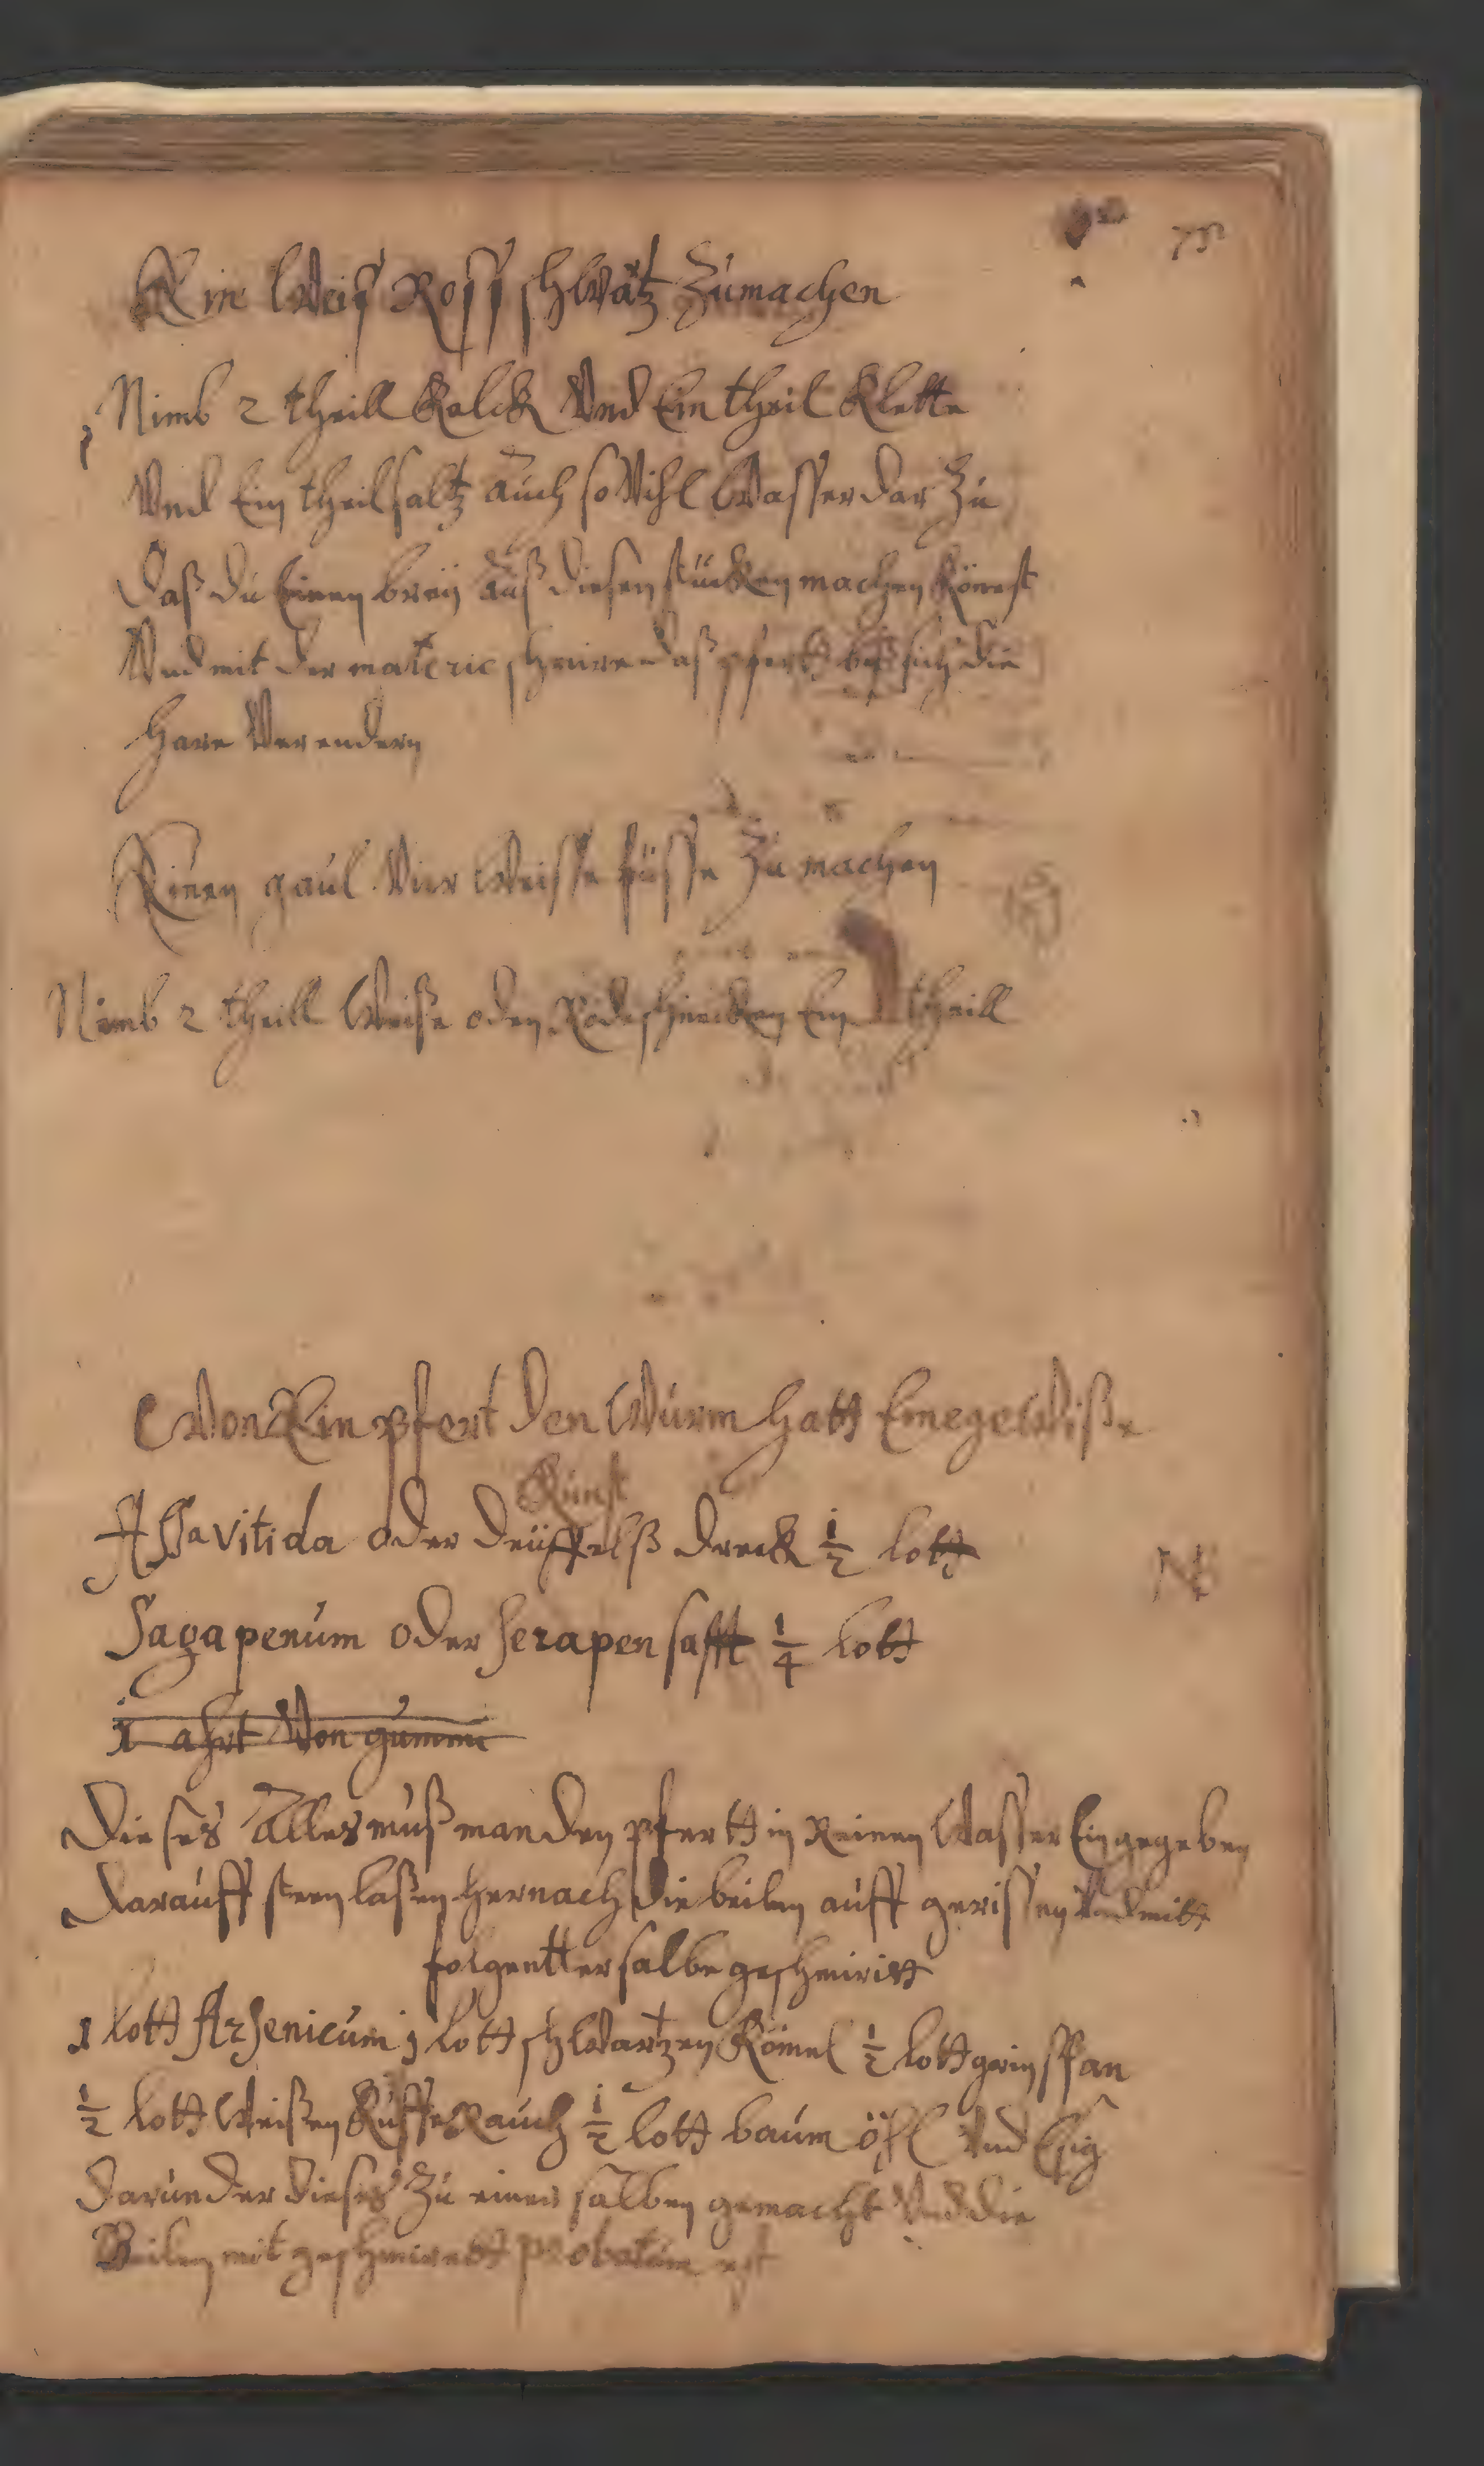 75
Ein Weiß Roß schwartz zu machen
Nimb 2 theill Kalck Vnd Ein theil Klette
Vnd Ein theil saltz auch so Vihl Wasser dar zu
daß du Einen breÿ auß diesen stücken machen Könest
Vnd mit der materie schmire daß pfertt biß sich die
Hare Verendern
Einen gaul Vier Weisse füsse zu machen
Nimb 2 theill Weiße oder Rode schnecken Ein theill
Won Ein pfert den Wurm hatt Eine geWiße
Kunst
Assa Vitida oder deüffelß dreck ½ lott
NB
Sagapenum oder serapen safft ¼ lott
1 ahrt Von gummi
Dieses Alles muß man den pfertt in Reinen Wasser Ein gegeben
darauff steen laßen hernach die beilen auff gerissen Vnd mitt
folgentter salbe geschmirtt
1 lott Arsenicum 1 lott schWartzen Kömel ½ lott grinspan
½ lott Weißen Rauch ½ lott baum öhl Vnd Esig
darunder dieses zu einer salben gemacht Vnd die
Beilen mit geschmirett probatum est